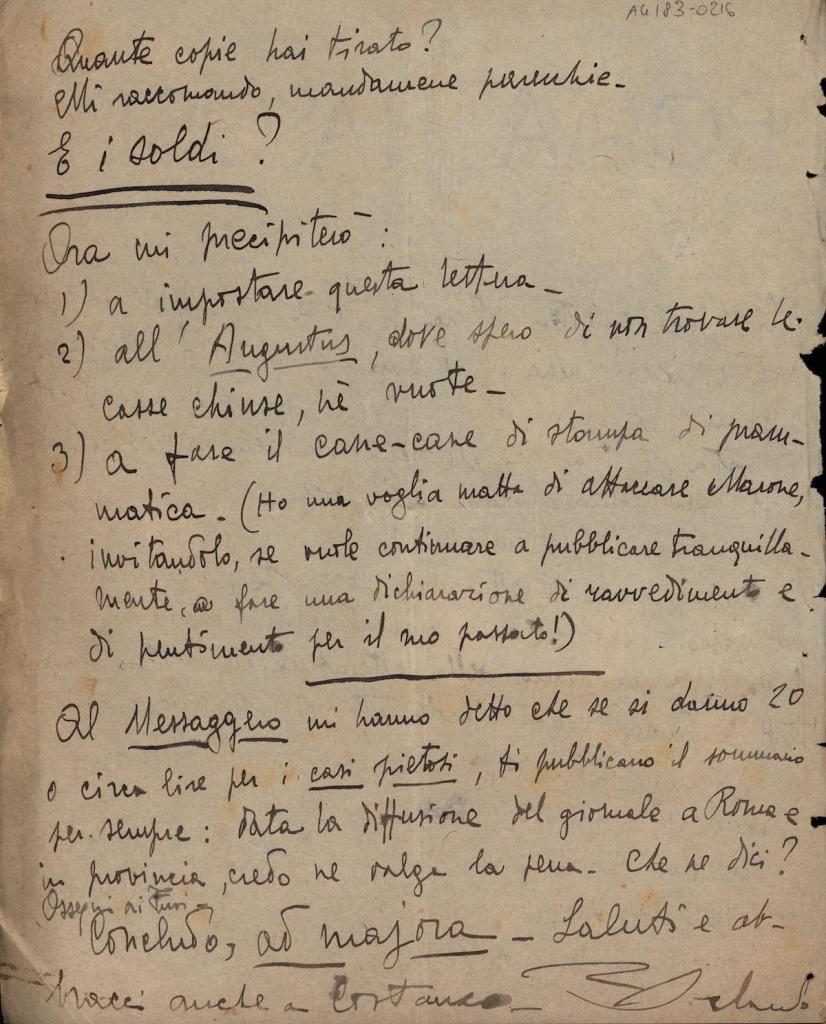 AG183-0216
Quante copie hai tirato?
Mi raccomando, mandamene parecchie -
E i soldi?
Ora mi precipiterò:
1) a impostare questa lettera -
2) all'Augustus, dove spero di non trovare le
casse chiuse, nè vuote -
3) a fare il cane-cane di stampa di pram-
matica - (Ho una voglia matta di attaccare Marone,
invitandolo, se vuole continuare a pubblicare tranquilla-
mente, a fare una dichiarazione di ravvedimento e
di pentimento per il suo passato!)
Al Messaggero mi hanno detto che se si danno 20
o circa lire per i casi pietosi, ti pubblicano il sommario
per sempre: data la diffusione del giornale a Roma e
in provincia, credo ne valga la pena - Che ne dici?
Ossequi ai Tuoi -
Concludo, ad majora - Saluti e ab-
bracci anche a Costanzo -